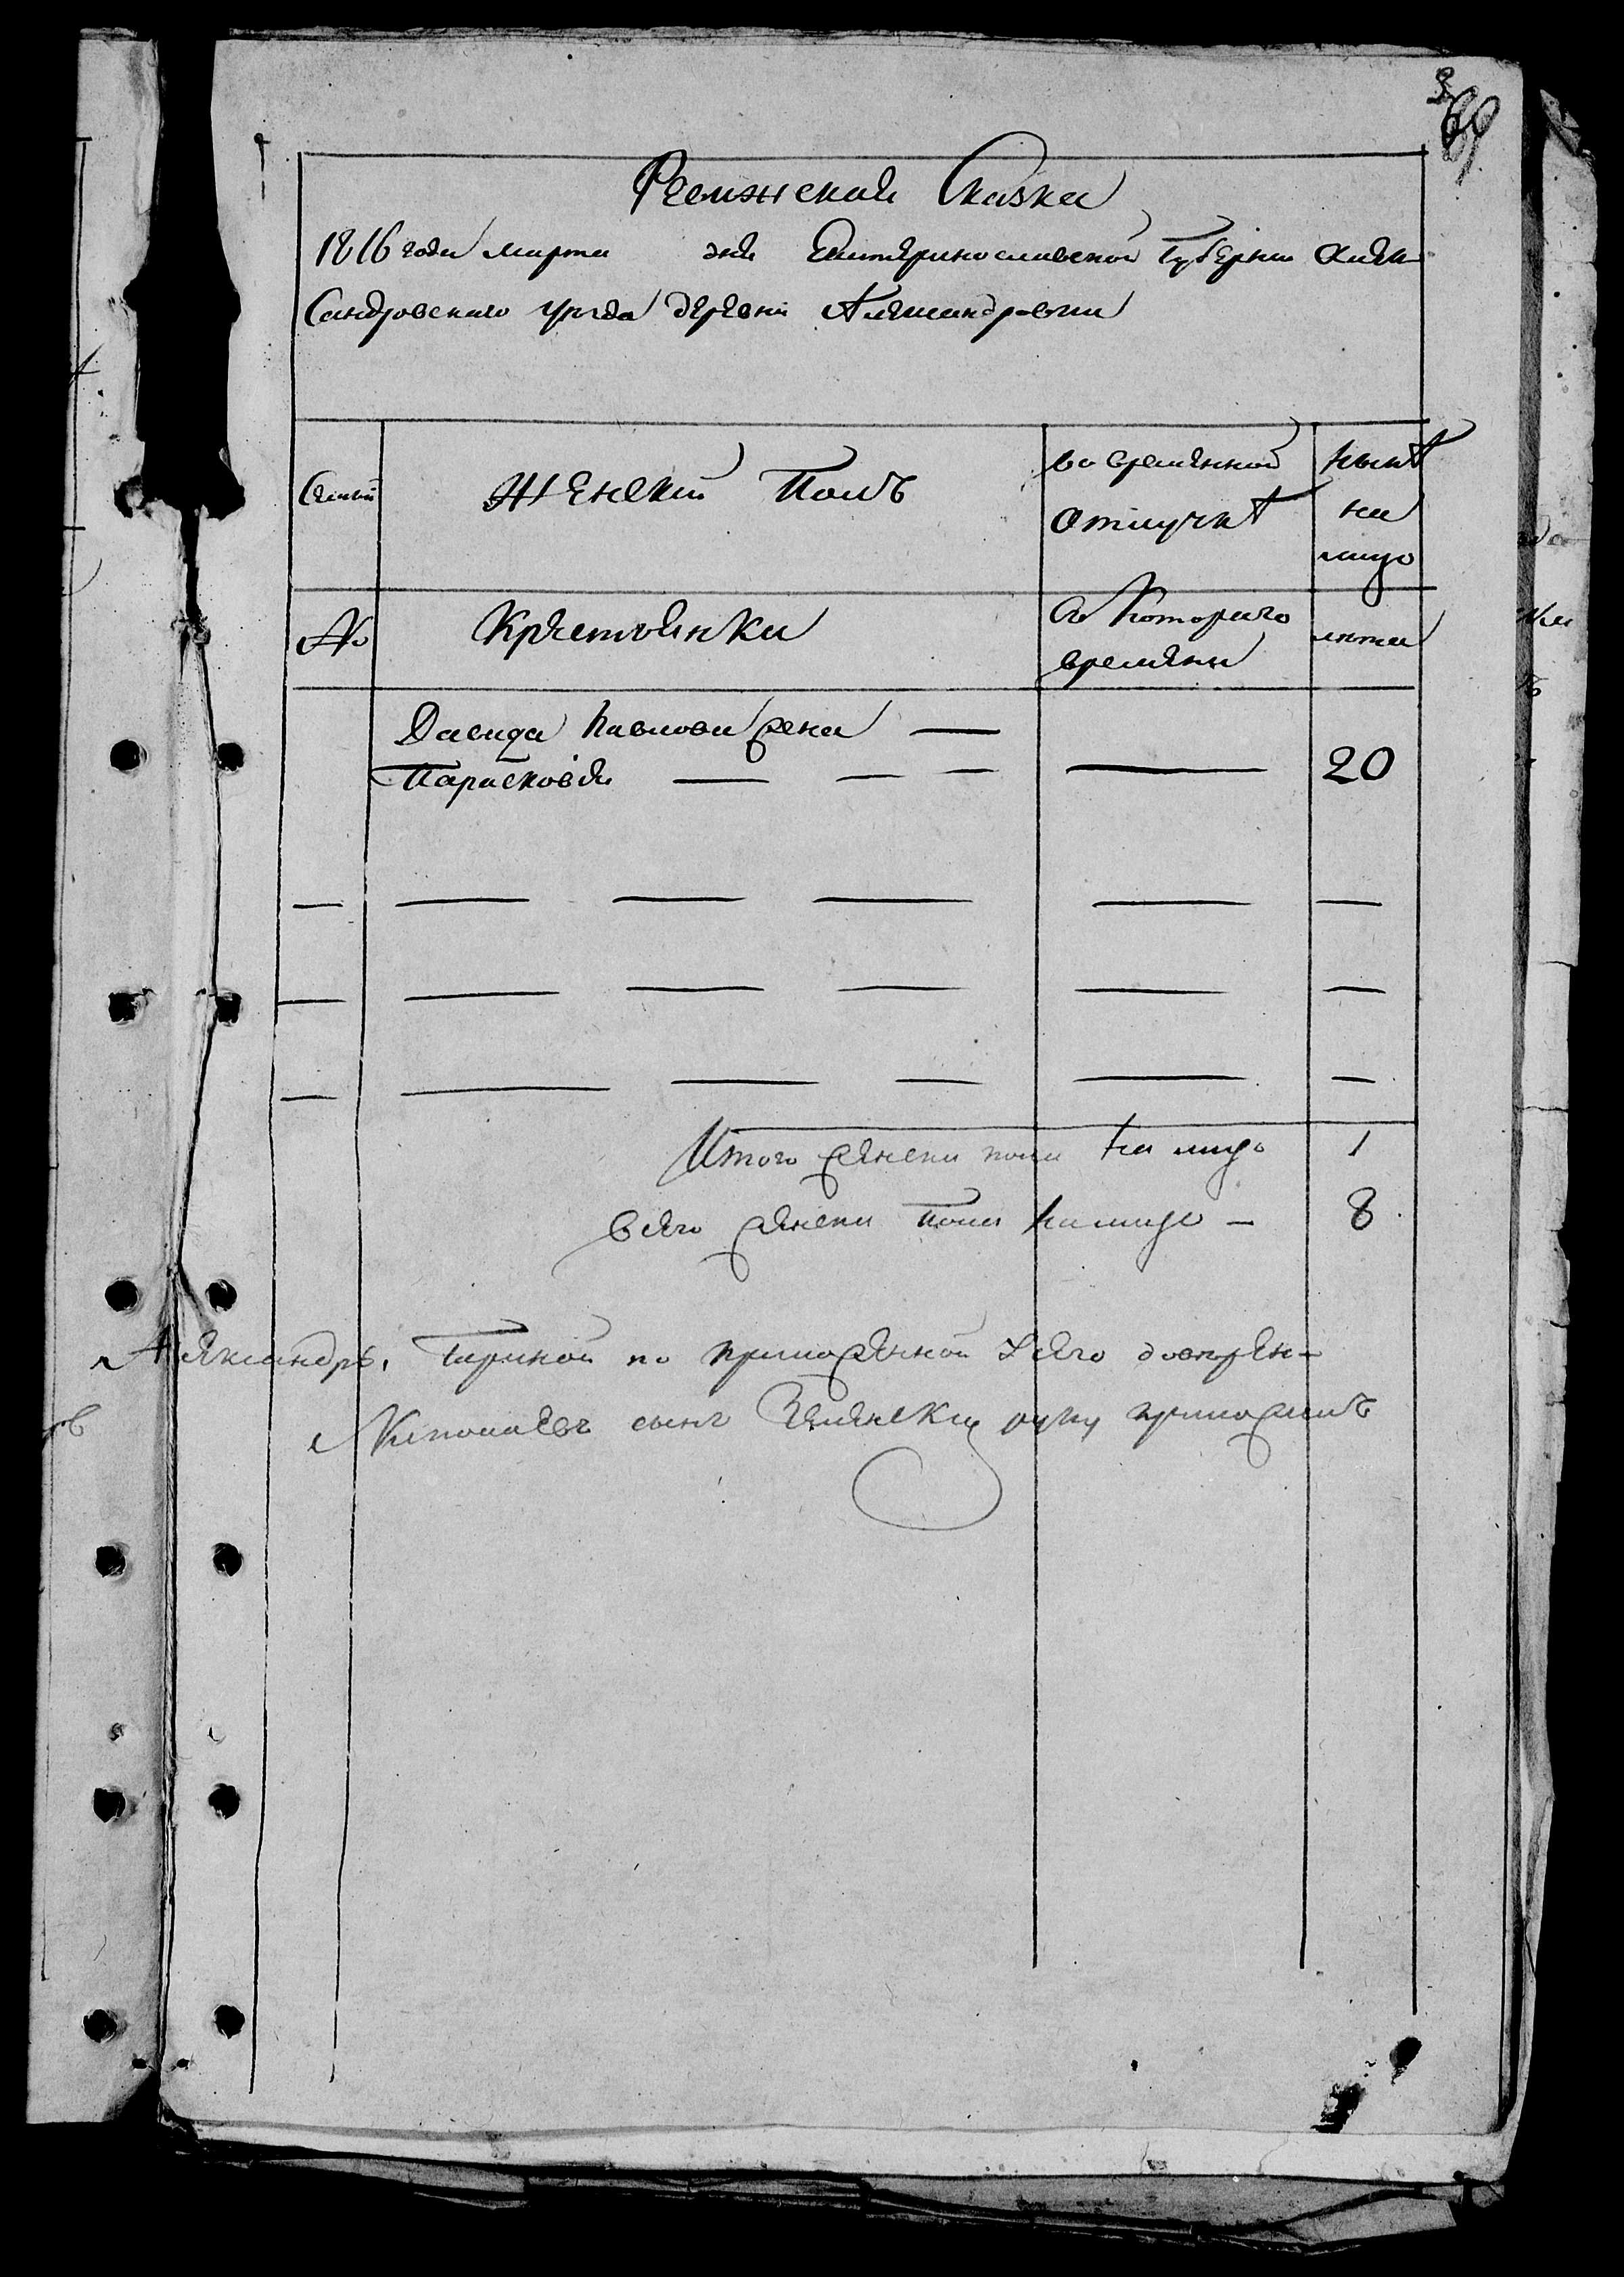 69
Ревижская Сказка
1816 года марта дня Екатеринославской Губернии Алек-
сандровскаго уезда деревни Александровки
Семьи
Женский Полъ
во временной
отлучкѣ
нынѣ
на
лицо
№
Крестьянки
Съ Котораго
времяни
лѣта
Давида Павлова жена —
Парасковея — — — — 20
— — — — — —
— — — — — —
— — — — — —
Итого женска пола на лицо 1
Всего женска пола на лицо — 8
Александръ, по приложенной доверен-
сынъ руку приложилъ